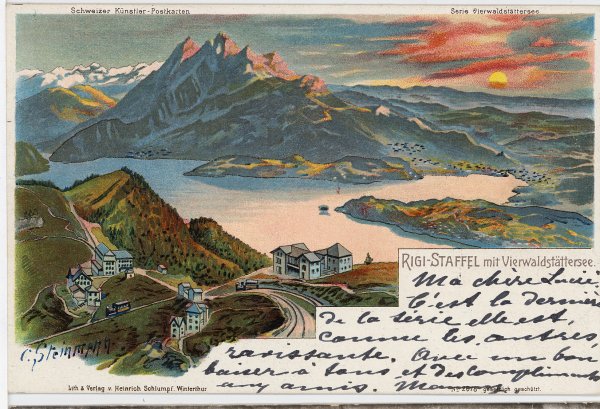 Schweizer Künstler-Postkarten
Serie Vierwaldstättersee
RIGI-STAFFEL mit Vierwaldstättersee.
Ma chère Lucie
C'est la dernière
de la série elle est,
comme les autres,
ravissante. Avec un bon
baiser à tous et des compliments
aux amis.
C. Steinmann
Lith & Verlag v. Heinrich Schlumpf. Winterthur
gesetzlich geschützt.